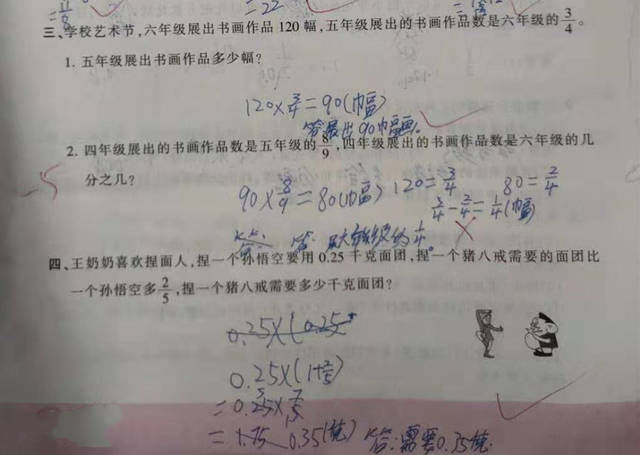 =22
三、学校艺术节,六年级展出书画作品120幅,五年级展出的书画作品数是六年级的3/4。
1. 五年级展出书画作品多少幅?
120×3/4=90(幅)
答:展出90幅画。
2. 四年级展出的书画作品数是五年级的8/9,四年级展出的书画作品数是六年级的几
分之几?
-5
90×8/9=80(幅) 120=3/4 80=2/4
3/4-2/4=1/4(幅)
答: 的1/4。
四、王奶奶喜欢捏面人,捏一个孙悟空要用0.25千克面团,捏一个猪八戒需要的面团比
一个孙悟空多2/5,捏一个猪八戒需要多少千克面团?
0.25×(0.25
0.25×(1+2/5)
=0.25×7/5
=1.75 0.35(千克) 答:需要0.35千克.